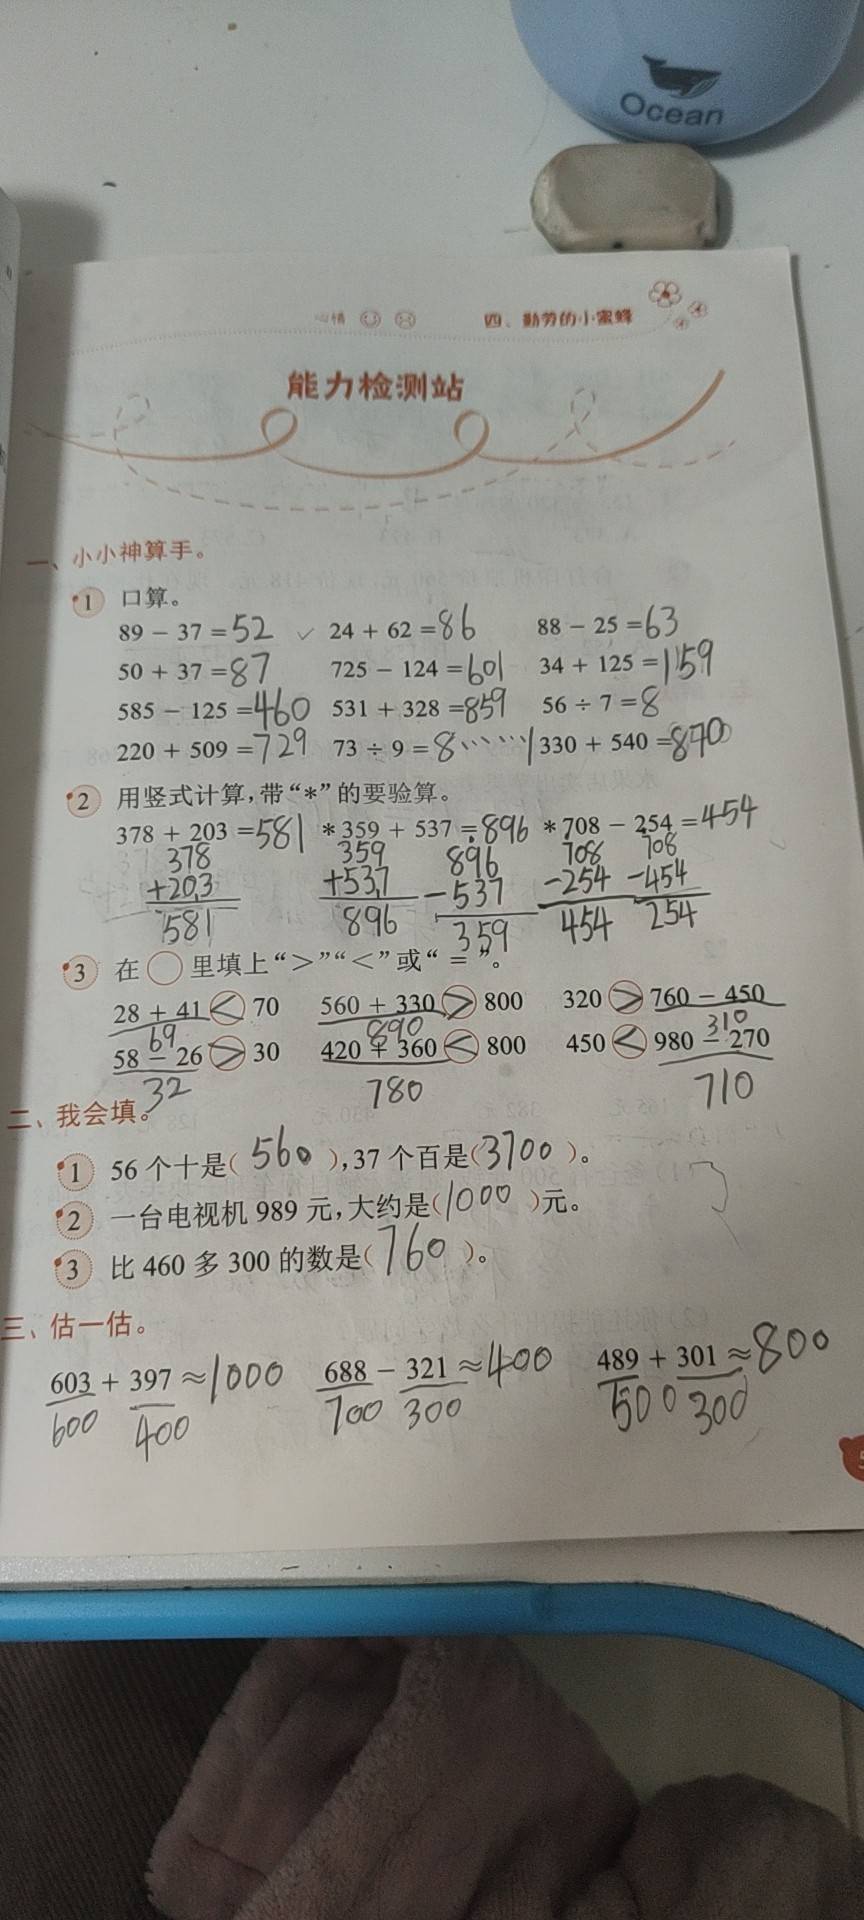 Ocean
心情
四、勤劳的小蜜蜂
能力检测站
一、小小神算手。
1 口算。
89 − 37 = 52 ✓ 24 + 62 = 86 88 − 25 = 63
50 + 37 = 87 725 − 124 = 601 34 + 125 = 159
585 − 125 = 460 531 + 328 = 859 56 ÷ 7 = 8
220 + 509 = 729 73 ÷ 9 = 8……1 330 + 540 = 870
2 用竖式计算,带“*”的要验算。
378 + 203 = 581 *359 + 537 = 896 *708 − 254 = 454
378 359 896 708 708
+203 +537 −537 −254 −454
581 896 359 454 254
3 在○里填上“>”“<”或“=”。
28 + 41 < 70 560 + 330 > 800 320 > 760 − 450
69 890 310
58 − 26 > 30 420 + 360 < 800 450 < 980 − 270
32 780 710
二、我会填。
1 56 个十是( 560 ),37 个百是( 3700 )。
2 一台电视机 989 元,大约是( 1000 )元。
3 比 460 多 300 的数是( 760 )。
三、估一估。
603 + 397 ≈ 1000 688 − 321 ≈ 400 489 + 301 ≈ 800
600 400 700 300 500 300